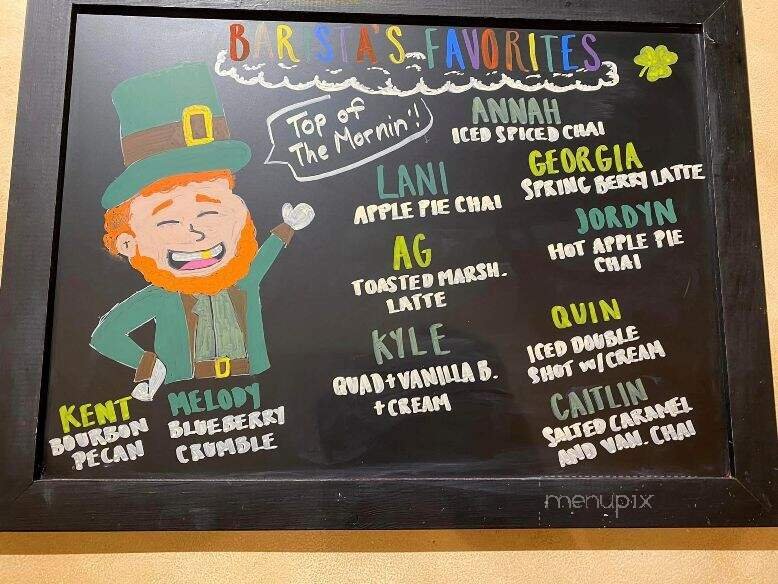 BARISTA'S FAVORITES
Top of
The Mornin'!
ANNAH
ICED SPICED CHAI
LANI
APPLE PIE CHAI
GEORGIA
SPRING BERRY LATTE
AG
TOASTED MARSH.
LATTE
JORDYN
HOT APPLE PIE
CHAI
KYLE
QUAD + VANILLA B.
+ CREAM
QUIN
ICED DOUBLE
SHOT W/CREAM
KENT
BOURBON
PECAN
MELODY
BLUEBERRY
CRUMBLE
CAITLIN
SALTED CARAMEL
AND VAN. CHAI
menupix